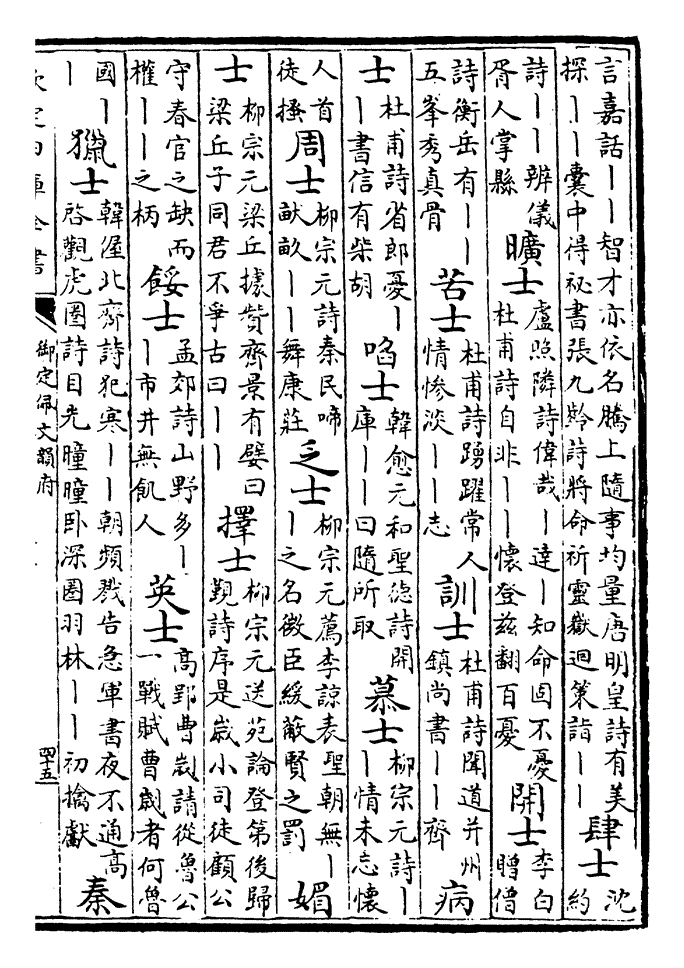 言嘉話——智才亦依名騰上隨事均量唐明皇詩有美探——囊中得祕書張九齡詩將命祈靈嶽迴策詣——肆士沈約
詩——辨儀胥人掌縣曠士盧照隣詩偉哉—達—知命固不憂杜甫詩自非——懷登兹翻百憂開士李白贈僧
詩衡岳有——五峯秀真骨苦士杜甫詩踴躍常人情慘淡——志訓士杜甫詩聞道并州鎮尚書——齊病
士杜甫詩省郎憂——書信有柴胡啗士韓愈元和聖德詩開庫——曰隨所取慕士柳宗元詩——情未忘懷
人首徒搔周士柳宗元詩秦民啼畎畝——舞康莊乏士柳宗元薦李諒表聖朝無——之名微臣緩蔽賢之罰媚
士柳宗元梁丘據贊齊景有嬖曰梁丘子同君不爭古曰——擇士柳宗元送苑論登第後歸覲詩序是歲小司徒顧公
守春官之缺而權——之柄餒士孟郊詩山野多——市井無飢人英士高郢曹劌請從魯公一戰賦曹劌者何魯
國——獵士韓偓北齊詩犯寒——朝頻戮告急軍書夜不通高啓觀虎圈詩目光曈曈臥深圈羽林——初擒獻秦
欽定四庫全書
御定佩文韻府
四十五